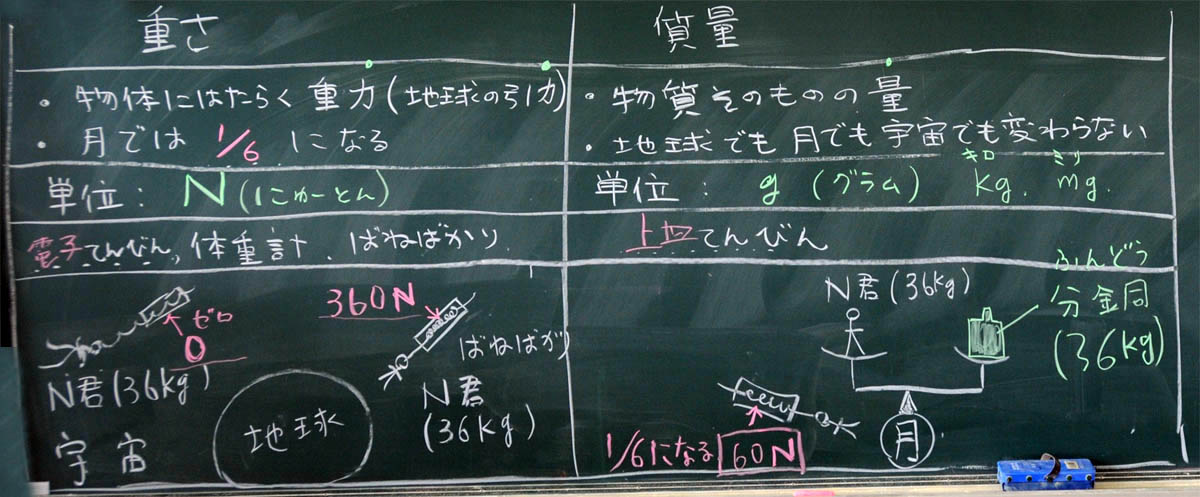 重さ
・物体にはたらく重力(地球の引力)
・月では 1/6 になる
単位: N(にゅーとん)
電子てんびん、体重計、ばねばかり
ゼロ
0
N君(36kg)
宇宙
地球
360N
ばねばかり
N君
(36kg)
質量
・物質そのものの量
・地球でも月でも宇宙でも変わらない
キロ ミリ
単位: g (グラム) kg. mg.
上皿てんびん
N君(36kg)
ふんどう
分金同
(36kg)
月
1/6になる 60N